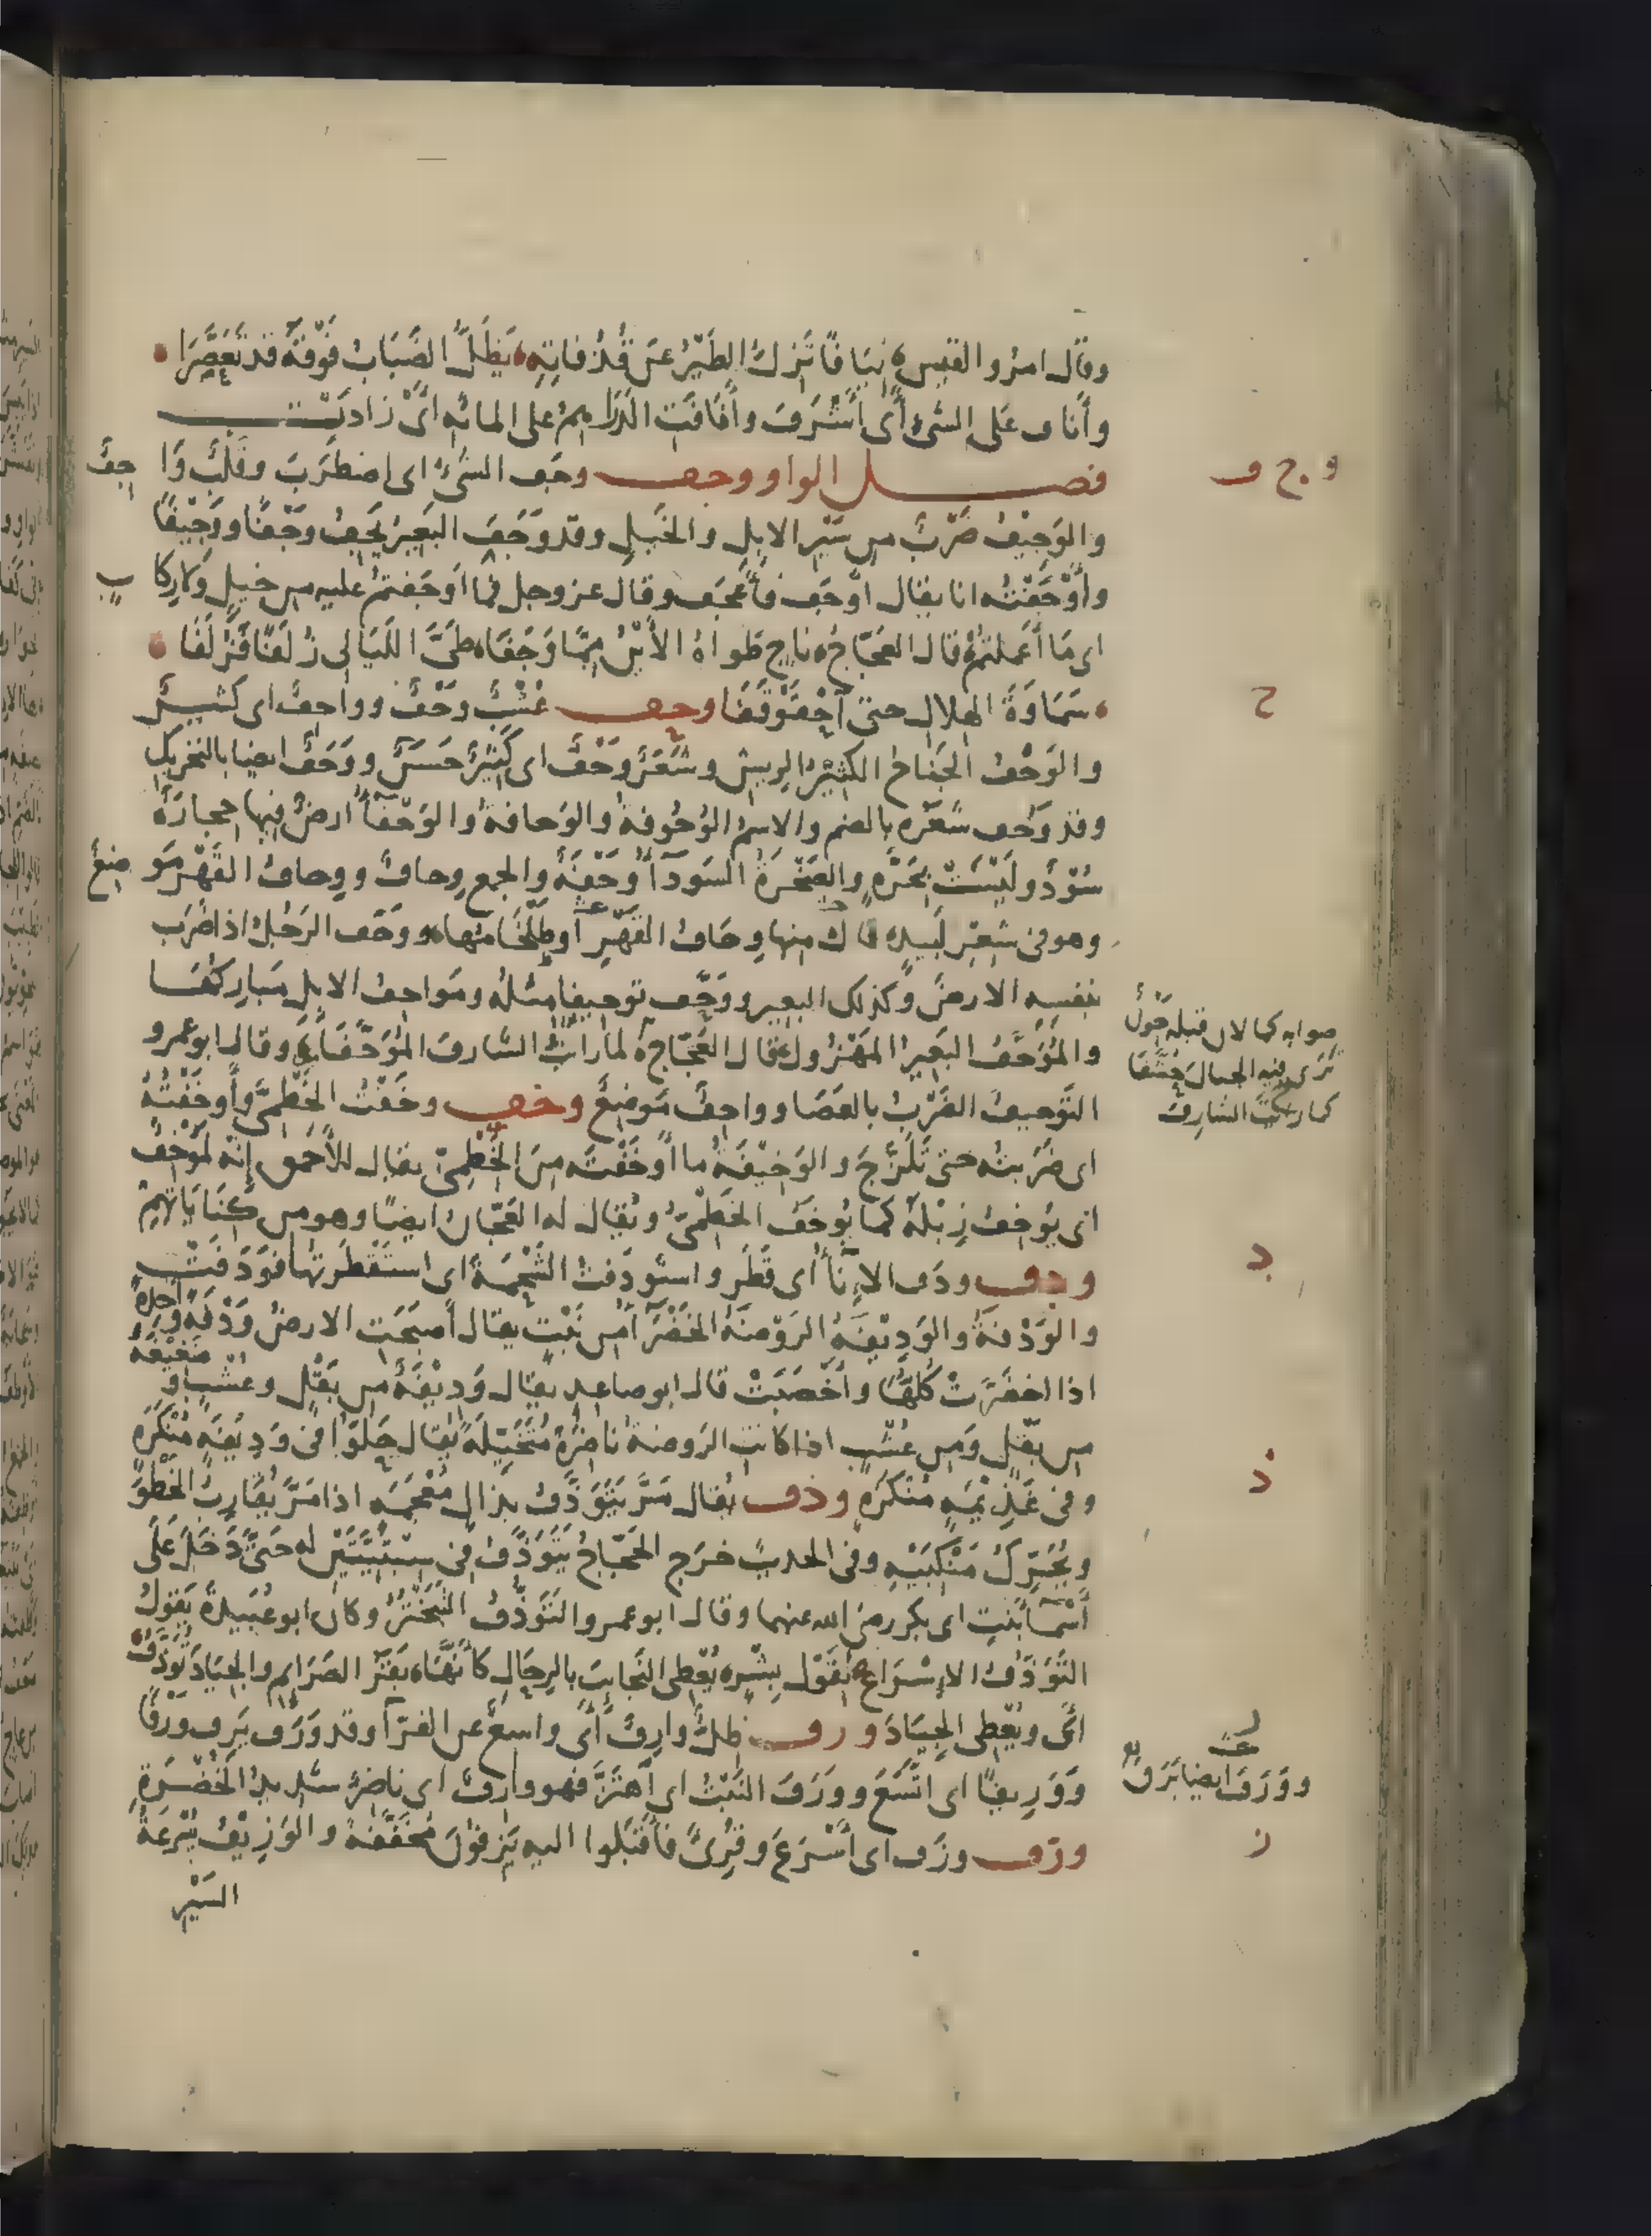 وقال امرؤ القيس نيافا تزل الطير عن قذفاته يظل الضباب فوقه قد تعصرا
وأناف على الشيء أي أشرف وأنافت الدراهم على المائه اي زادت
فصل الواو وجف وجف الشيء اي اضطرب وقلب واجف
والوجيف ضرب من سير الابل والخيل وقد وجف البعير يجف وجفا ووجيفا
وأوجفته انا يقال اوجف فأعجف وقال عز وجل فما اوجفتم عليه من خيل ولا ركاب
اى ما أعملتم قال العجاج ناج طواه الأين مما وجفا طى الليالى زلفا فزلفا
سماوة الهلال حتى احقوقفا وحف عشب وحف وواحف اى كثير
والوحف الجناح الكثير الريش وشعر وحف اى كثير حسن ووحف ايضا بالتحريك
وقد وحف شعره بالضم والاسم الوحوفة والوحافة والوحفاء ارض فيها حجارة
سود وليست بحرة والصخرة السوداء وحفة والجمع وحاف ووحاف القهر موضع
وهو فى شعر لبيد قال منها وحاف القهر أو طلخامها ووحف الرجل اذا ضرب
بنفسه الارض وكذلك البعير ووحف توحيفا مثله ومواحف الابل مباركها
والموحف البعير المهزول قال العجاج لما رأيت الشارف الموحفا وقال ابو عمرو
التوحيف الضرب بالعصا وواحف موضع وخف وخفت الخطمى وأوخفته
اى ضربته حتى تلزج والوخيفة ما أوخفته من الخطمى يقال للأحمق إنه لموخف
اى يوخف زبله كما يوخف الخطمى ويقال له العجان ايضا وهو من كناياتهم
ودف ودف الإناء أى قطر واستودفت الشحمة اى استقطرتها فودفت
والودفة والوديفة الروضة الخضراء من نبت يقال أصبحت الارض ودفة واحدة
اذا اخضرت كلها وأخصبت قال ابو صاعد يقال وديفة من بقل وعشب وضغيغة
من بقل ومن عشب اذا كانت الروضة ناضرة متخيلة يقال حلوا فى وديفة منكرة
وفى غذيمة منكرة وذف يقال مر يتوذف بذال معجمه اذا مر يقارب الخطو
ويحرك منكبيه وفى الحديث خرج الحجاج يتوذف فى سبتيتين له حتى دخل على
أسماء بنت ابى بكر رضى الله عنهما وقال ابو عمرو التوذف التبختر وكان ابو عبيدة يقول
التوذف الاسراع لقول بشر يعطى النجائب بالرحال كأنها بقر الصرائم والجياد توذف
أى ويعطى الجياد ورف ظل وارف أى واسع عن الفراء وقد ورف يرف ورفا
ووريفا اى اتسع وورف النبت اى اهتز فهو وارف اى ناضر شديد الخضرة
وزف وزف اى أسرع وقرئ فأقبلوا اليه يزفون مخففة والوزيف سرعة
السير
و ج ف
ح
صوابه كما لان قبله جون
ترى فيه الجبال خشفا
كما رأيت الشارف
د
ذ
ر
وورف ايضا يرف
ز